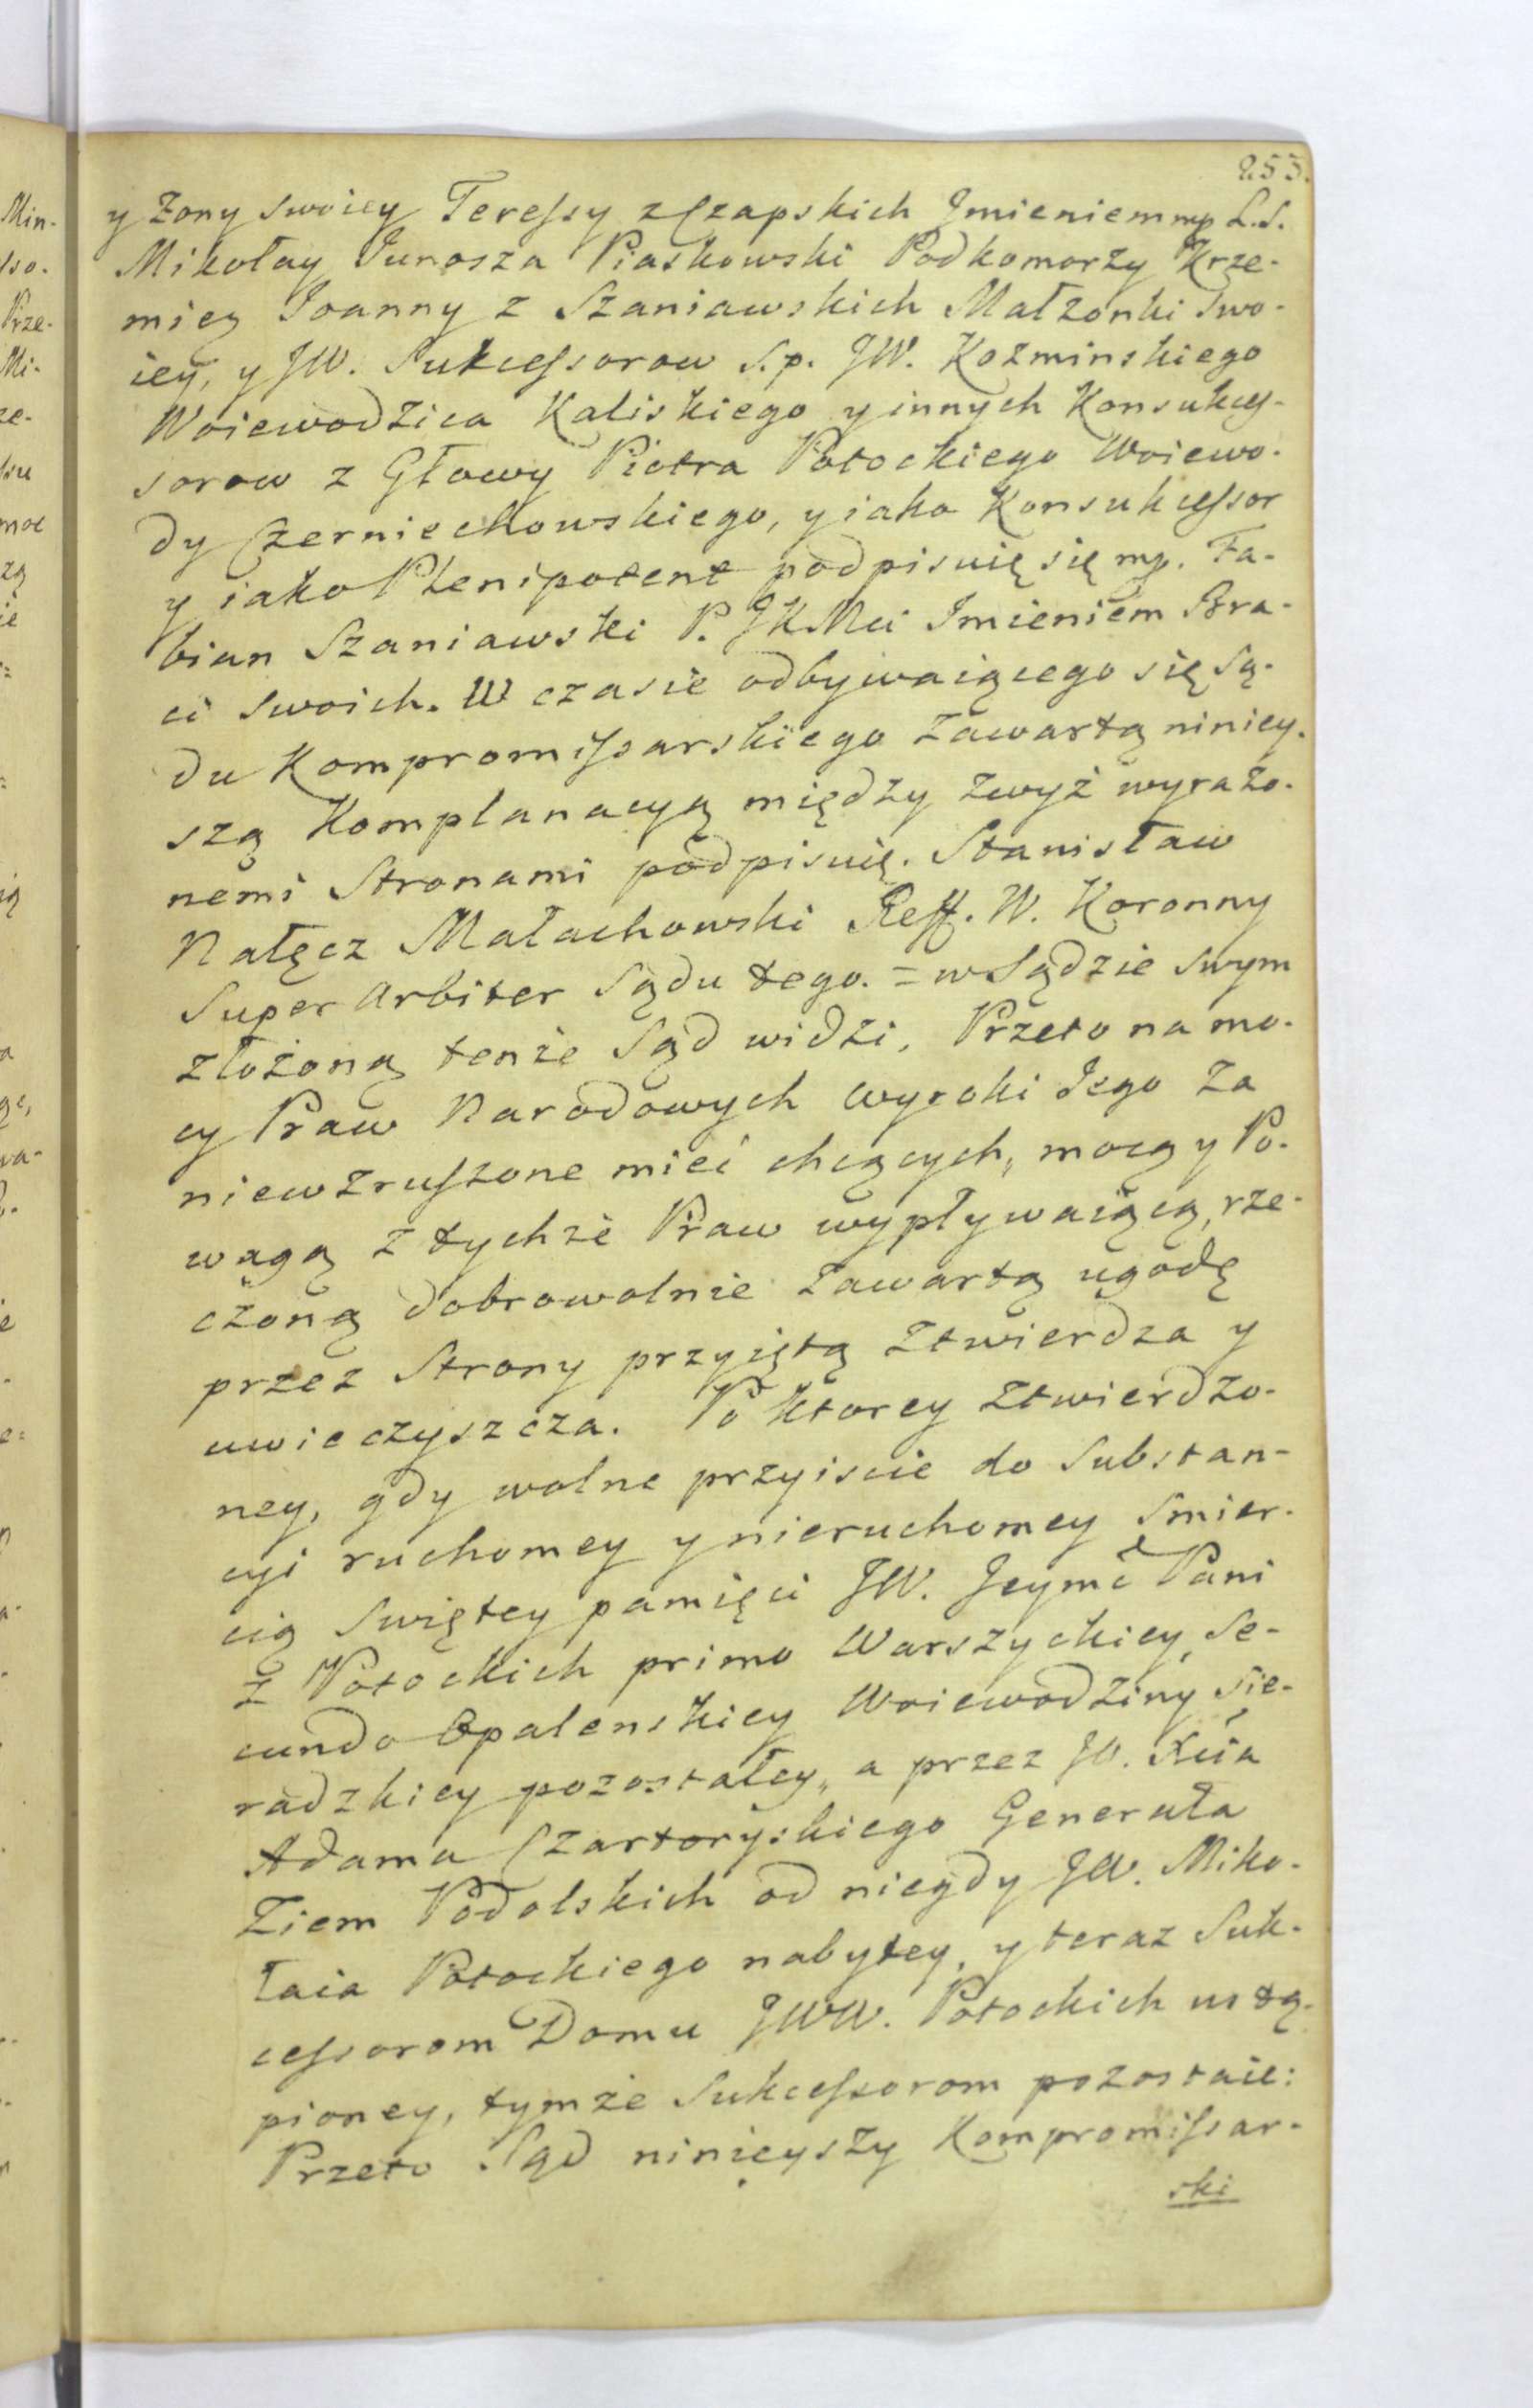 253.
y Zony swoiey Teressy z Czapskich Jmieniem mp L.S.
Mikołay Junosza Piaskowski Podkomorzy Krze-
miey Joanny z Szaniawskich Małzonki swo-
iey, y JW. Sukcessorow S.p. JW. Kozminskiego
Woiewodzica Kaliskiego y innych Konsukces-
sorow z Głowy Piotra Potockiego Woiewo-
dy Czerniechowskiego, y iako Konsukcessor
y iako Plenipotent podpisuię się mp. Fa-
bian Szaniawski P. JKMci Jmieniem Bra-
ci swoich. W czasie odbywaiącego się Są-
du Kompromissarskiego zawartą niniey-
szą Komplanacyą między zwyż wyrażo-
nemi Stronami podpisuię. Stanisław
Nałęcz Małachowski Reff. W. Koronny
Super Arbiter Sądu tego. = w Sądzie swym
złożoną tenże Sąd widzi, Przeto na mo-
cy Praw Narodowych wyroki Jego za
niewzruszone mieć chcących, mocą y Po-
wagą z tychże Praw wypływaiącą, rze-
czoną dobrowolnie zawartą ugodę
przez Strony przyiętą ztwierdza y
uwieczyszcza. Po ktorey ztwierdzo-
ney, gdy wolne przyiscie do Substan-
cyi ruchomey y nieruchomey Smier-
cią Swiętey pamięci JW. Jeymć Pani
z Potockich primo Warszyckiey, Se-
cundo Opalenskiey Woiewodziny Sie-
radzkiey pozostałey, a przez JO. Xcia
Adama Czartoryskiego Generała
Ziem Podolskich od niegdy JW. Miko-
łaia Potockiego nabytey, y teraz Suk-
cessorom Domu JWW. Potockich ustą-
pioney, tymże Sukcessorom pozostaie:
Przeto Sąd ninieyszy Kompromissar-
ski